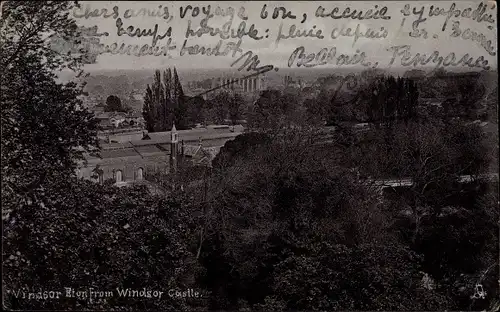 Chers amis, voyage bon, accueil sympathique
temps horrible: pluie depuis hier. Bons
bientôt
Mr Bellair, Penzance
Windsor Eton from Windsor Castle.